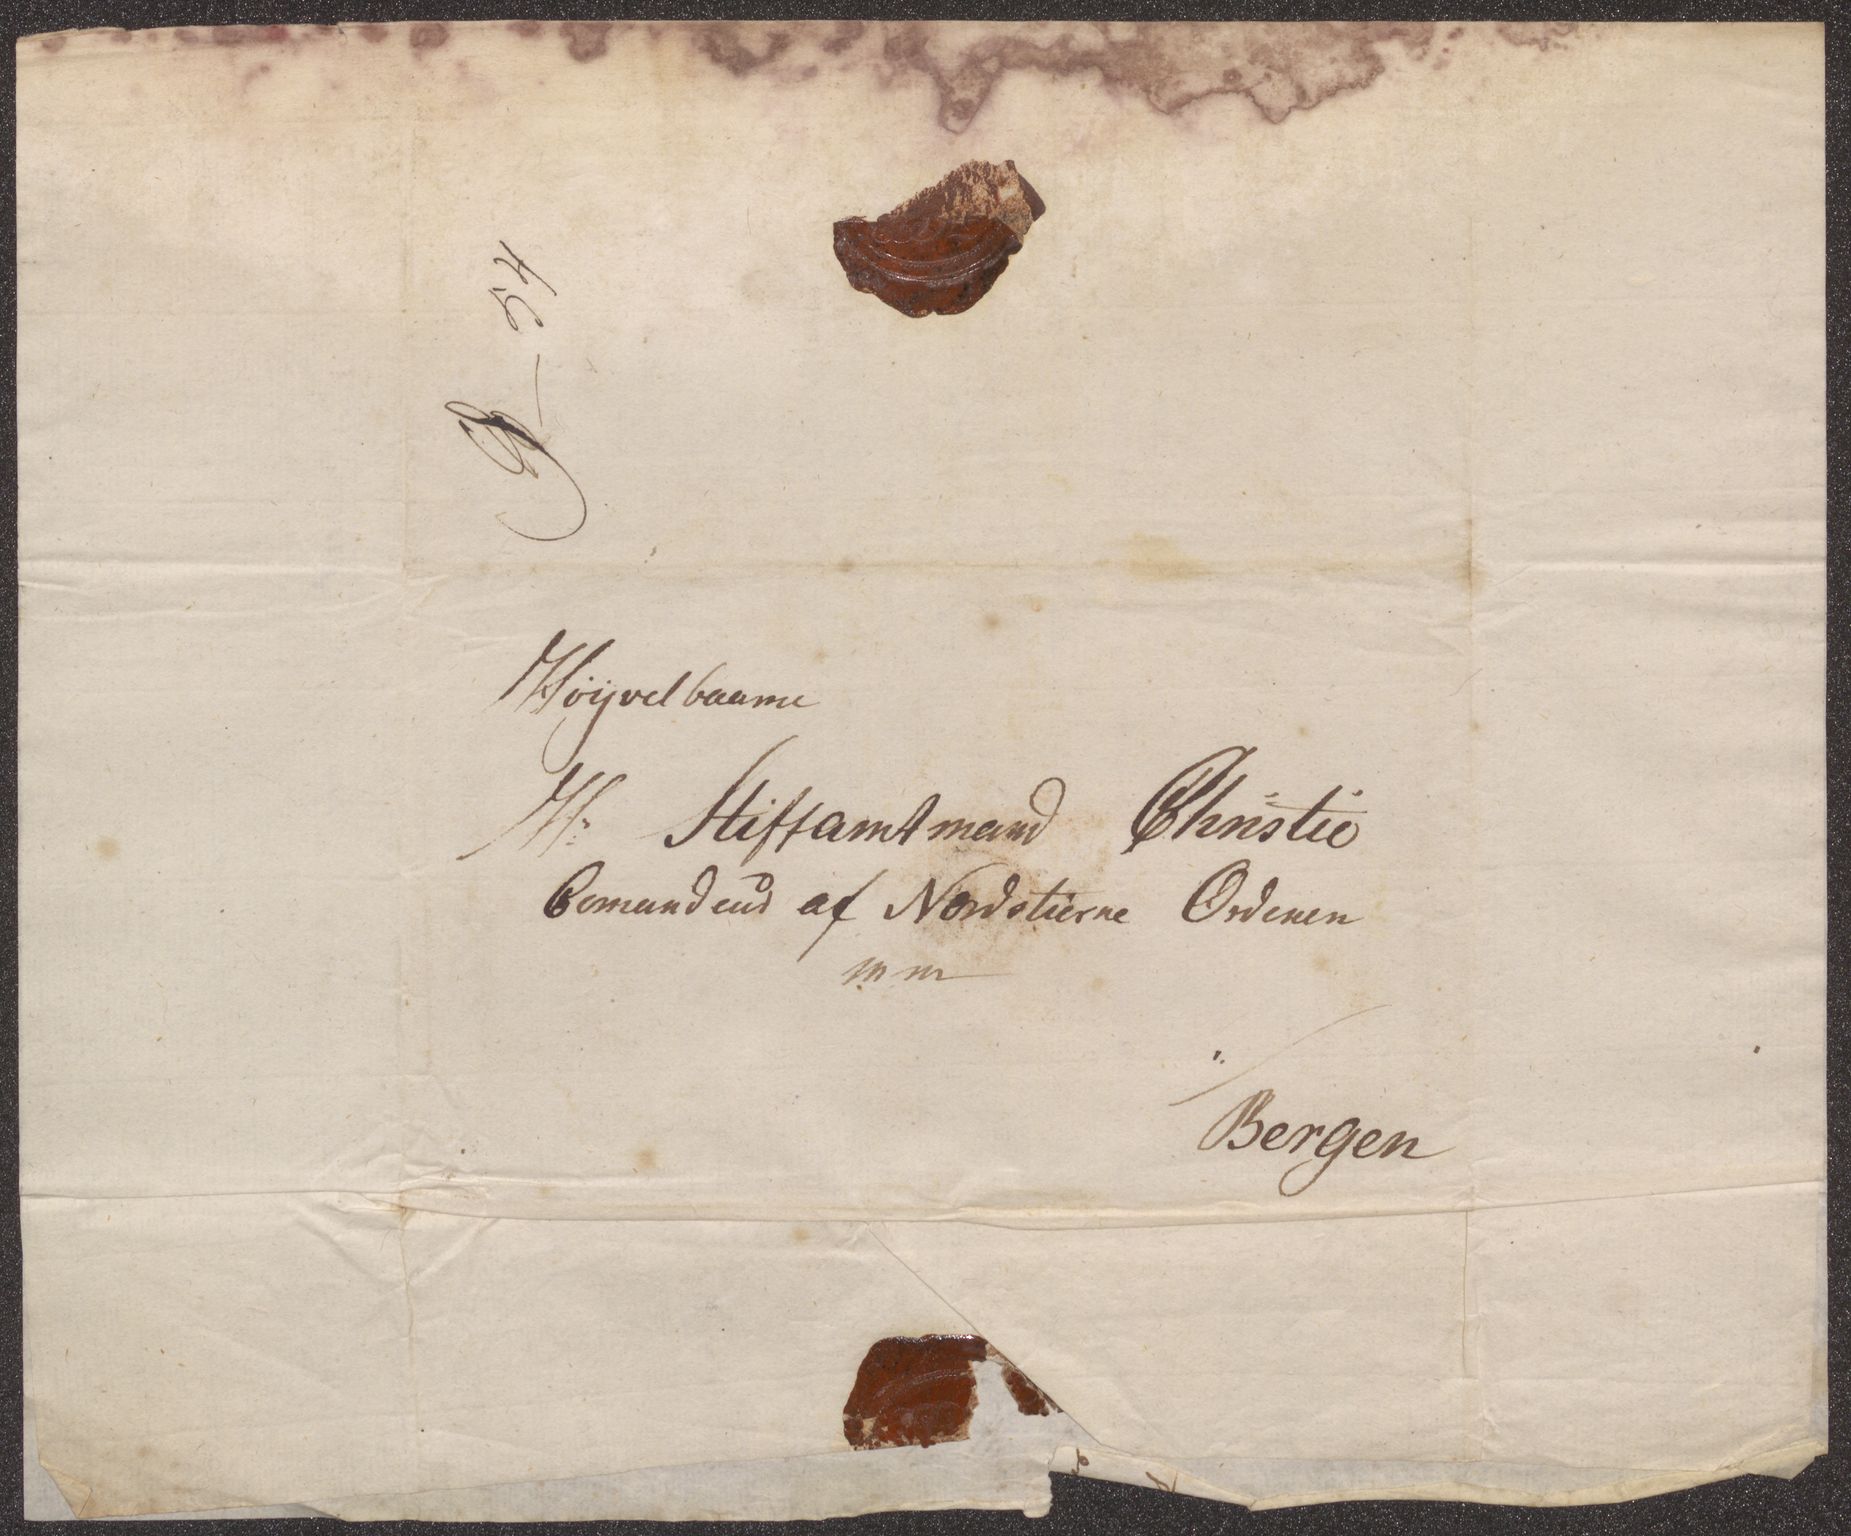 54
Høÿvelbaarne
Hr Stiftsamtmand Christie
Comandeur af Nordstierne Ordenen
m m
i
Bergen